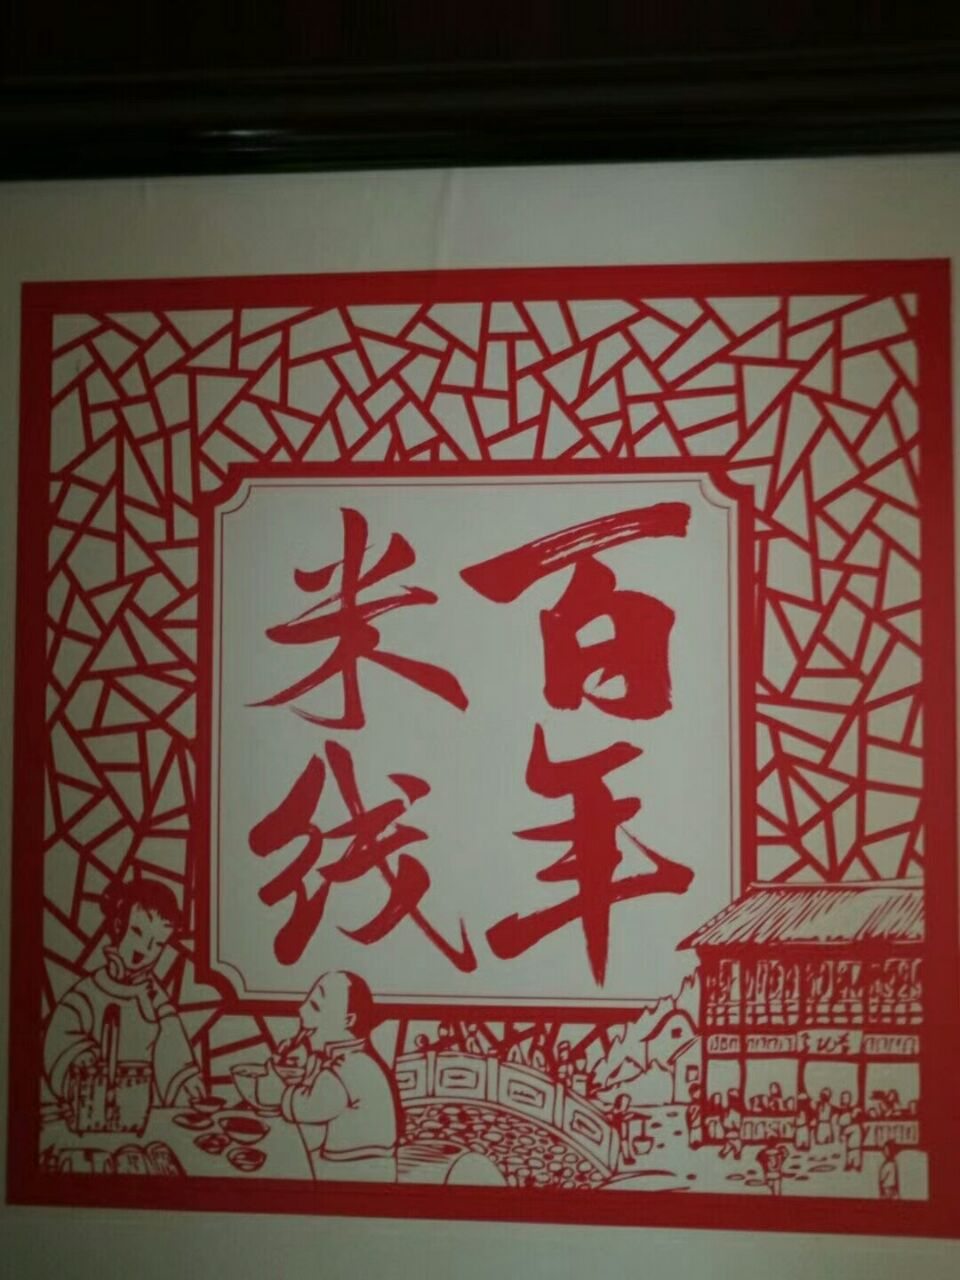 百年
米线